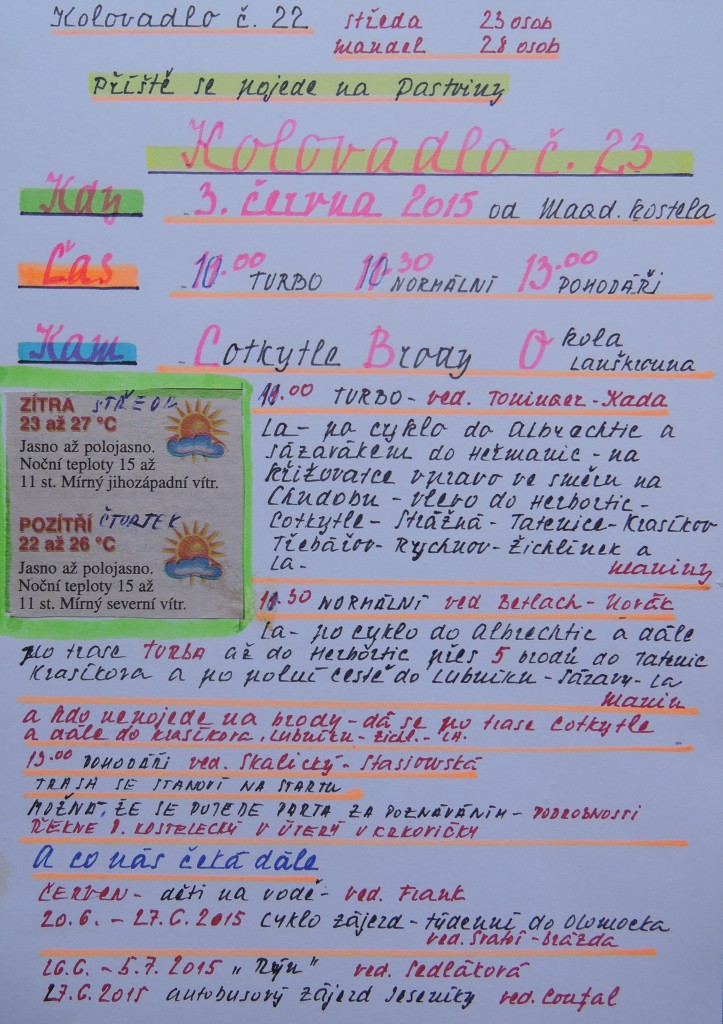 Kolovadlo č. 22
středa 23 osob
mandel 28 osob
Příště se pojede na Pastviny
Kolovadlo č. 23
Kdy 3. června 2015 od Magd. kostela
Čas 10.00 TURBO 10.30 NORMÁLNÍ 13.00 POHODÁŘI
Kam Cotkytle Brody O kola
Lanškrouna
ZÍTRA STŘEDA
23 až 27 °C
Jasno až polojasno.
Noční teploty 15 až
11 st. Mírný jihozápadní vítr.
POZÍTŘÍ ČTVRTEK
22 až 26 °C
Jasno až polojasno.
Noční teploty 15 až
11 st. Mírný severní vítr.
11.00 TURBO - ved. Toninger - Kada
La - po cyklo do Albrechtic a
Sázavákem do Heřmanic - na
křižovatce vpravo ve směru na
Chudobu - vlevo do Herbortic -
Cotkytle - Strážná - Tatenice - Krasíkov
Třebářov - Rychnov - Žichlínek a
La -
11.30 NORMÁLNÍ ved Betlach - Novák
La - po cyklo do Albrechtic a dále
po trase TURBA až do Herbortic přes 5 brodů do Tatenic
Krasíkova a po polní cestě do Lubníku - Sázavy - La
a kdo nepojede na brody - dá se po trase Cotkytle
a dále do Krasíkova, Lubníku - Žichl. - LA.
13.00 POHODÁŘI ved. Skalický - Stasiowská
TRASA SE STANOVÍ NA STARTU
MOŽNÁ, ŽE SE POJEDE PARTA ZA POZNÁVÁNÍM - PODROBNOSTI
ŘEKNE P. KOSTELECKÝ V ÚTERÝ V KRKOVIČKY
A co nás čeká dále
ČERVEN - děti na vodě - ved. Frank
20.6. - 27.6.2015 Cyklo zájezd - týdenní do Olomoucka
ved. - Brázda
26.6. - 5.7.2015 „Rýn" ved. Sedláková
27.6.2015 autobusový zájezd Jeseníky ved. Coufal